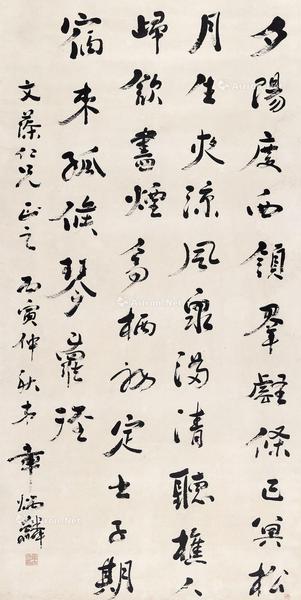 夕陽度西領羣壑條已冥松
月生夜涼風泉滿清聽樵人
歸欲盡煙鳥栖初定之子期
宿來孤候琴蘿徑
文蔡仁兄正之 丙寅仲秋 章炳麟